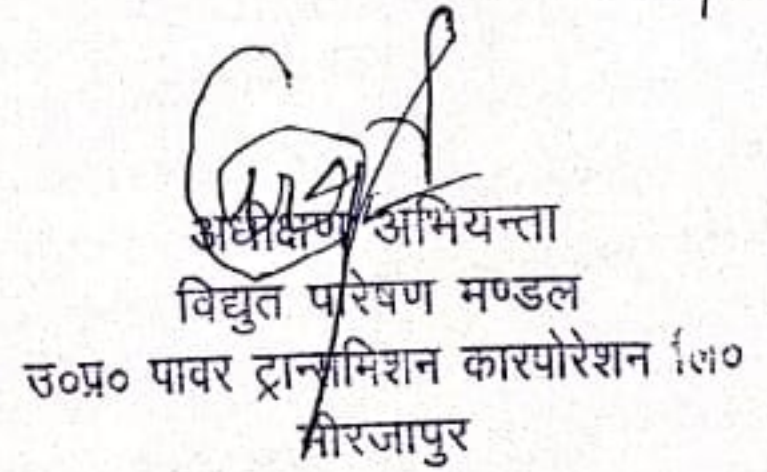 अधीक्षण अभियन्ता
विद्युत पारेषण मण्डल
उ०प्र० पावर ट्रान्समिशन कारपोरेशन लि०
मीरजापुर